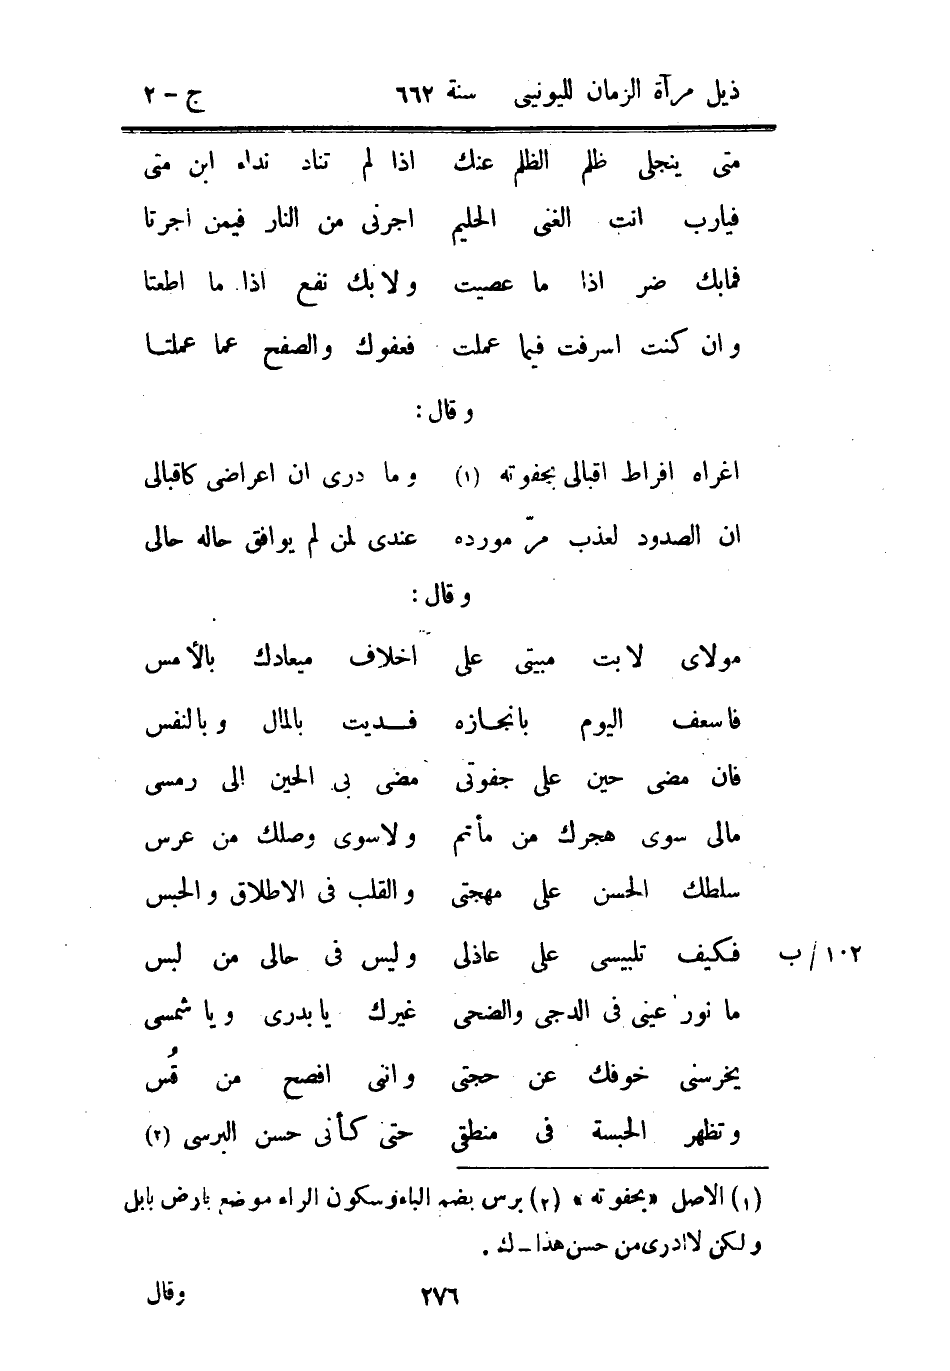 ذيل مرآة الزمان لليونيى سنة ٦٦٢ ج - ٢
متى ينجلى ظلم الظلم عنك اذا لم تناد نداء ابن متى
فيارب انت الغنى الحليم اجرنى من النار فيمن اجرتا
فمابك ضر اذا ما عصيت ولا بك نفع اذا ما اطعتا
وان كنت اسرفت فيما عملت فعفوك والصفح عما عملتا
وقال :
اغراه افراط اقبالى بجفوته (١) وما درى ان اعراضى كاقبالى
ان الصدود لعذب مرّ مورده عندى لمن لم يوافق حاله حالى
وقال :
مولاى لا بت مبيتى على اخلاف ميعادك بالأمس
فاسعف اليوم بانجازه فديت بالمال وبالنفس
فان مضى حين على جفوتى مضى بى الحين الى رمسى
مالى سوى هجرك من مأتم ولا سوى وصلك من عرس
سلطك الحسن على مهجتى والقلب فى الاطلاق والحبس
فكيف تلبيسى على عاذلى وليس فى حالى من لبس ١٠٢/ب
ما نور عينى فى الدجى والضحى غيرك يا بدرى ويا شمسى
يخرسنى خوفك عن حجتى وانى افصح من قُس
وتظهر الحبسة فى منطقى حتى كأنى حسن البرسى (٢)
(١) الاصل «بحفوته» (٢) برس بضم الباء وسكون الراء موضع بارض بابل
ولكن لا ادرى من حسن هذا - ك .
٢٧٦ وقال